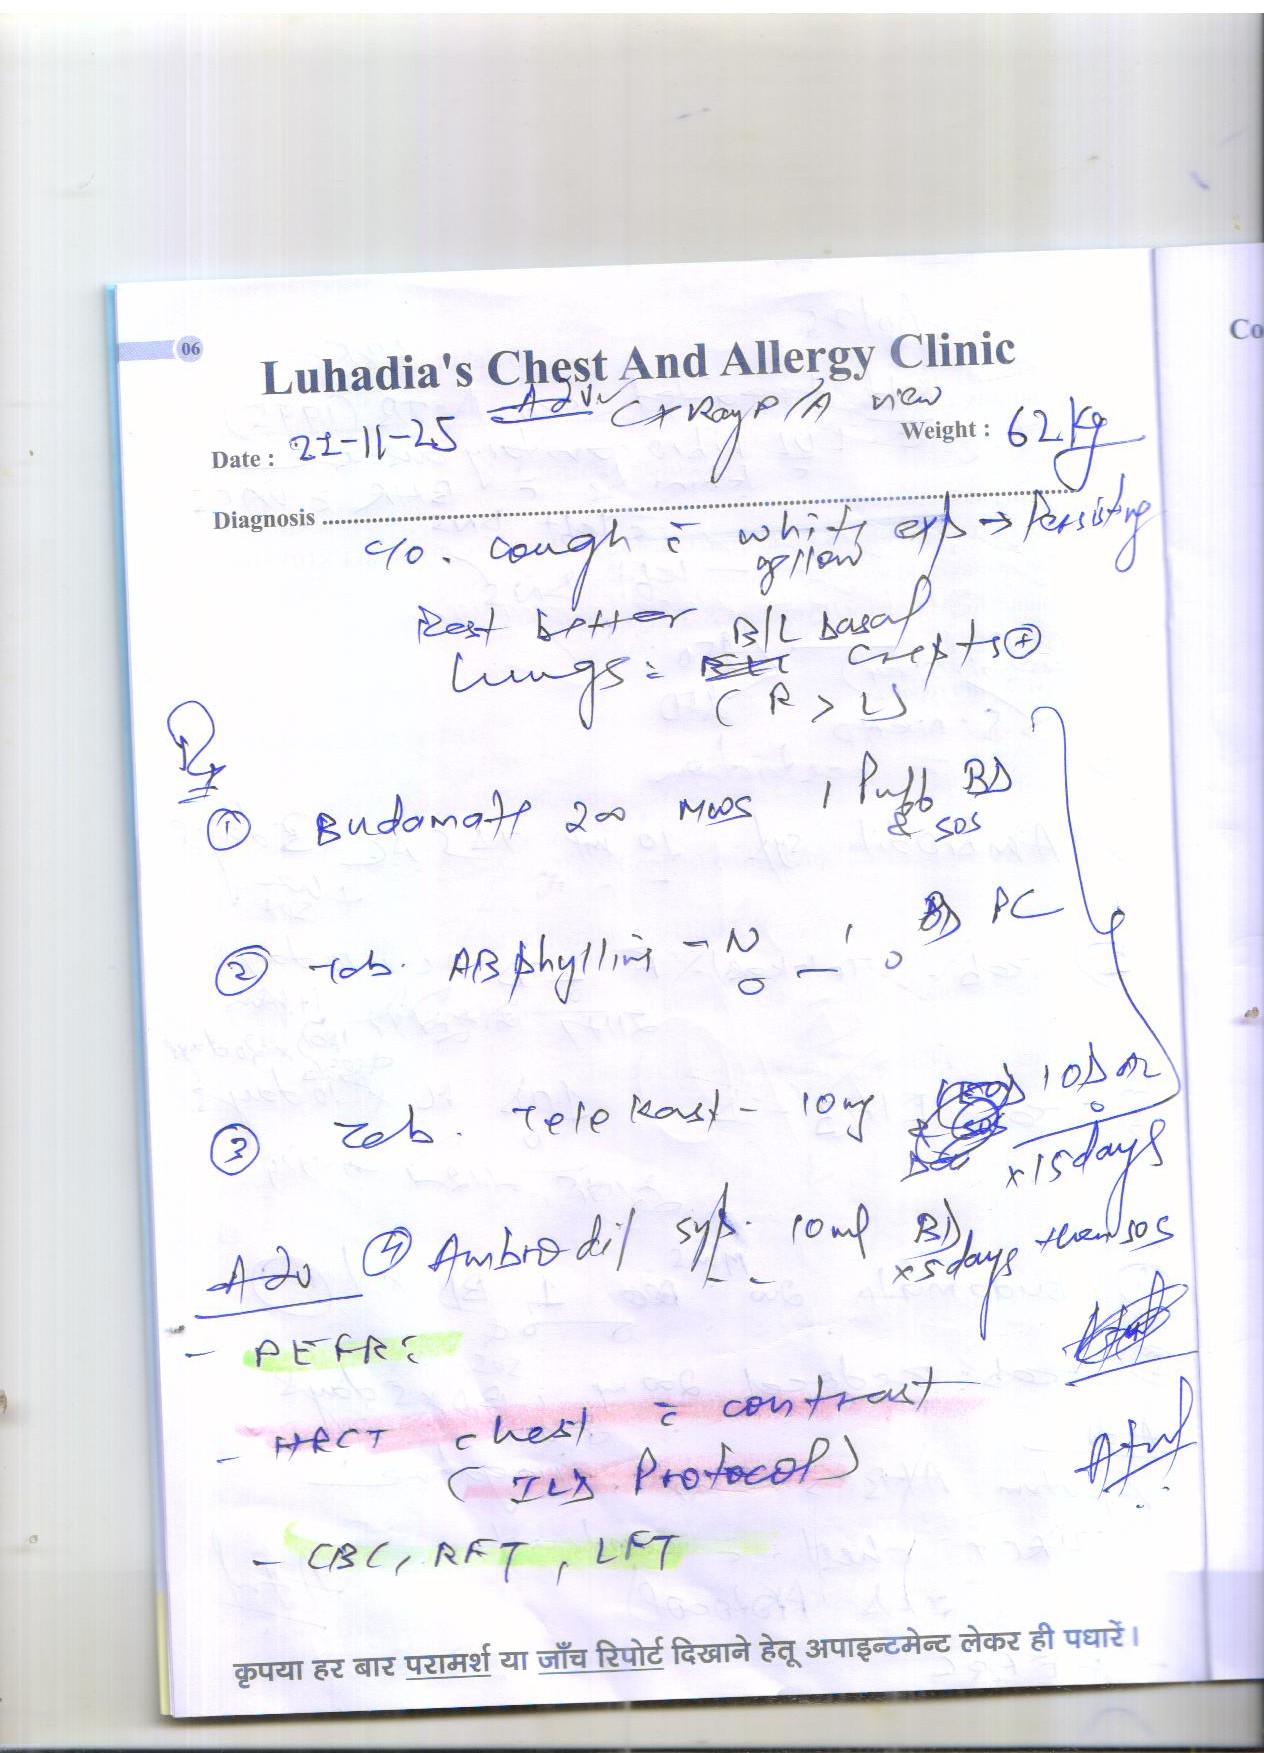 06
Luhadia's Chest And Allergy Clinic
Adv CXRay P/A view
Date : 22-11-25 Weight : 62 kg
Diagnosis
c/o. cough c̄ white exp → Persisting
yellow
Rest better
B/L basal
Lungs = crepts ⊕
( R > L )
Rx
① Budamate 200 1 Puff BD
& SOS
② Tab. ABphylline - N BD PC
③ Tab. Telekast - 10mg 1 OD
x 15 days
④ Ambrodil syp. 10ml BD
x 5 days then SOS
Adv
- PEFR:
- HRCT chest c̄ contrast
( ILD Protocol )
- CBC, RFT, LFT
कृपया हर बार परामर्श या जाँच रिपोर्ट दिखाने हेतू अपाइन्टमेन्ट लेकर ही पधारें।
Co